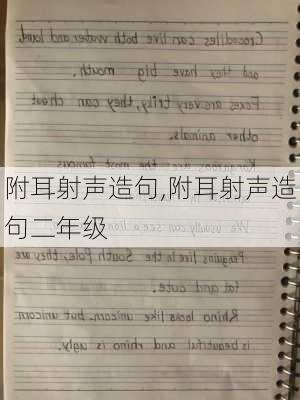 Crocodiles can live both water and land,
and they have big mouth.
Foxes are very triky, they can cheat
other animals.
Kangaroos are the most famous
附耳射声造句,附耳射声造
句二年级
We usually can see a
Penguins live in the South Pole, they are
fat and cute.
Rhino looks like unicorn, but unicorn
is beautiful and rhino is ugly.